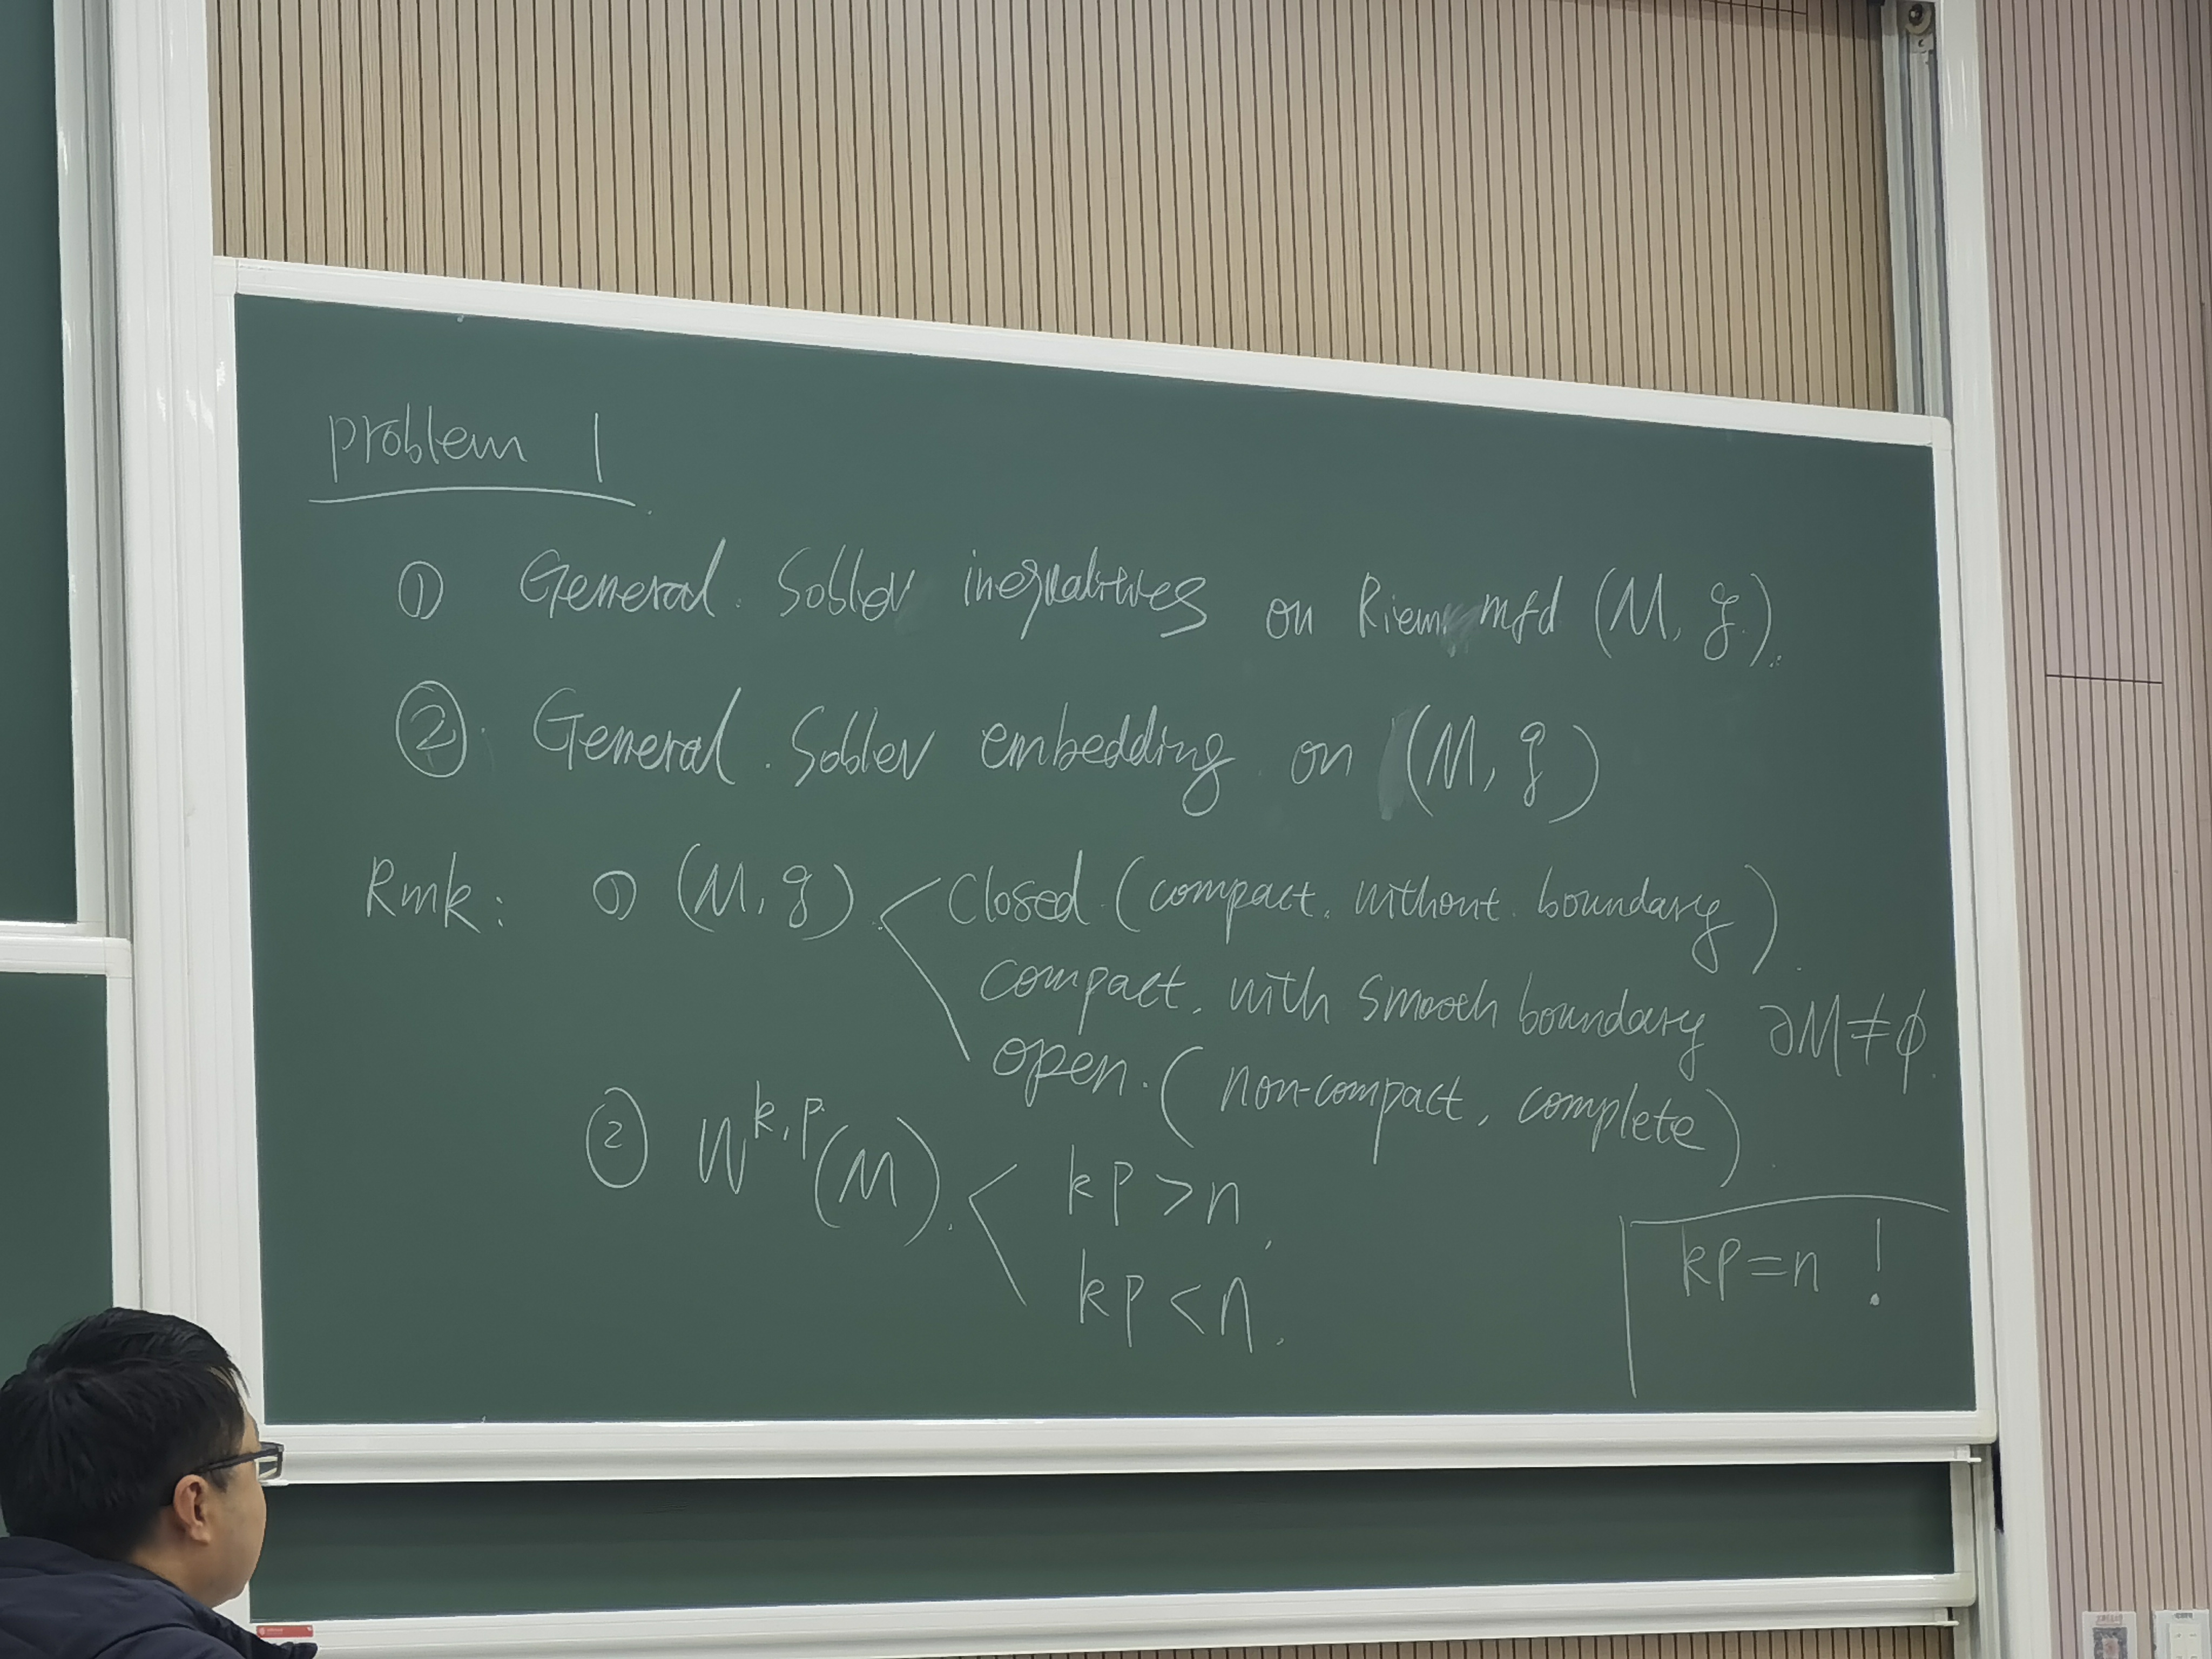 problem 1
① General Soblev inequalities on Riem. mfd (M, g).
② General Soblev embedding on (M, g)
Rmk: ① (M, g) < Closed (compact, without boundary)
compact, with smooth boundary ∂M ≠ ∅.
open. (non-compact, complete)
② W^{k,p}(M) < kp > n,
kp < n.
kp = n !